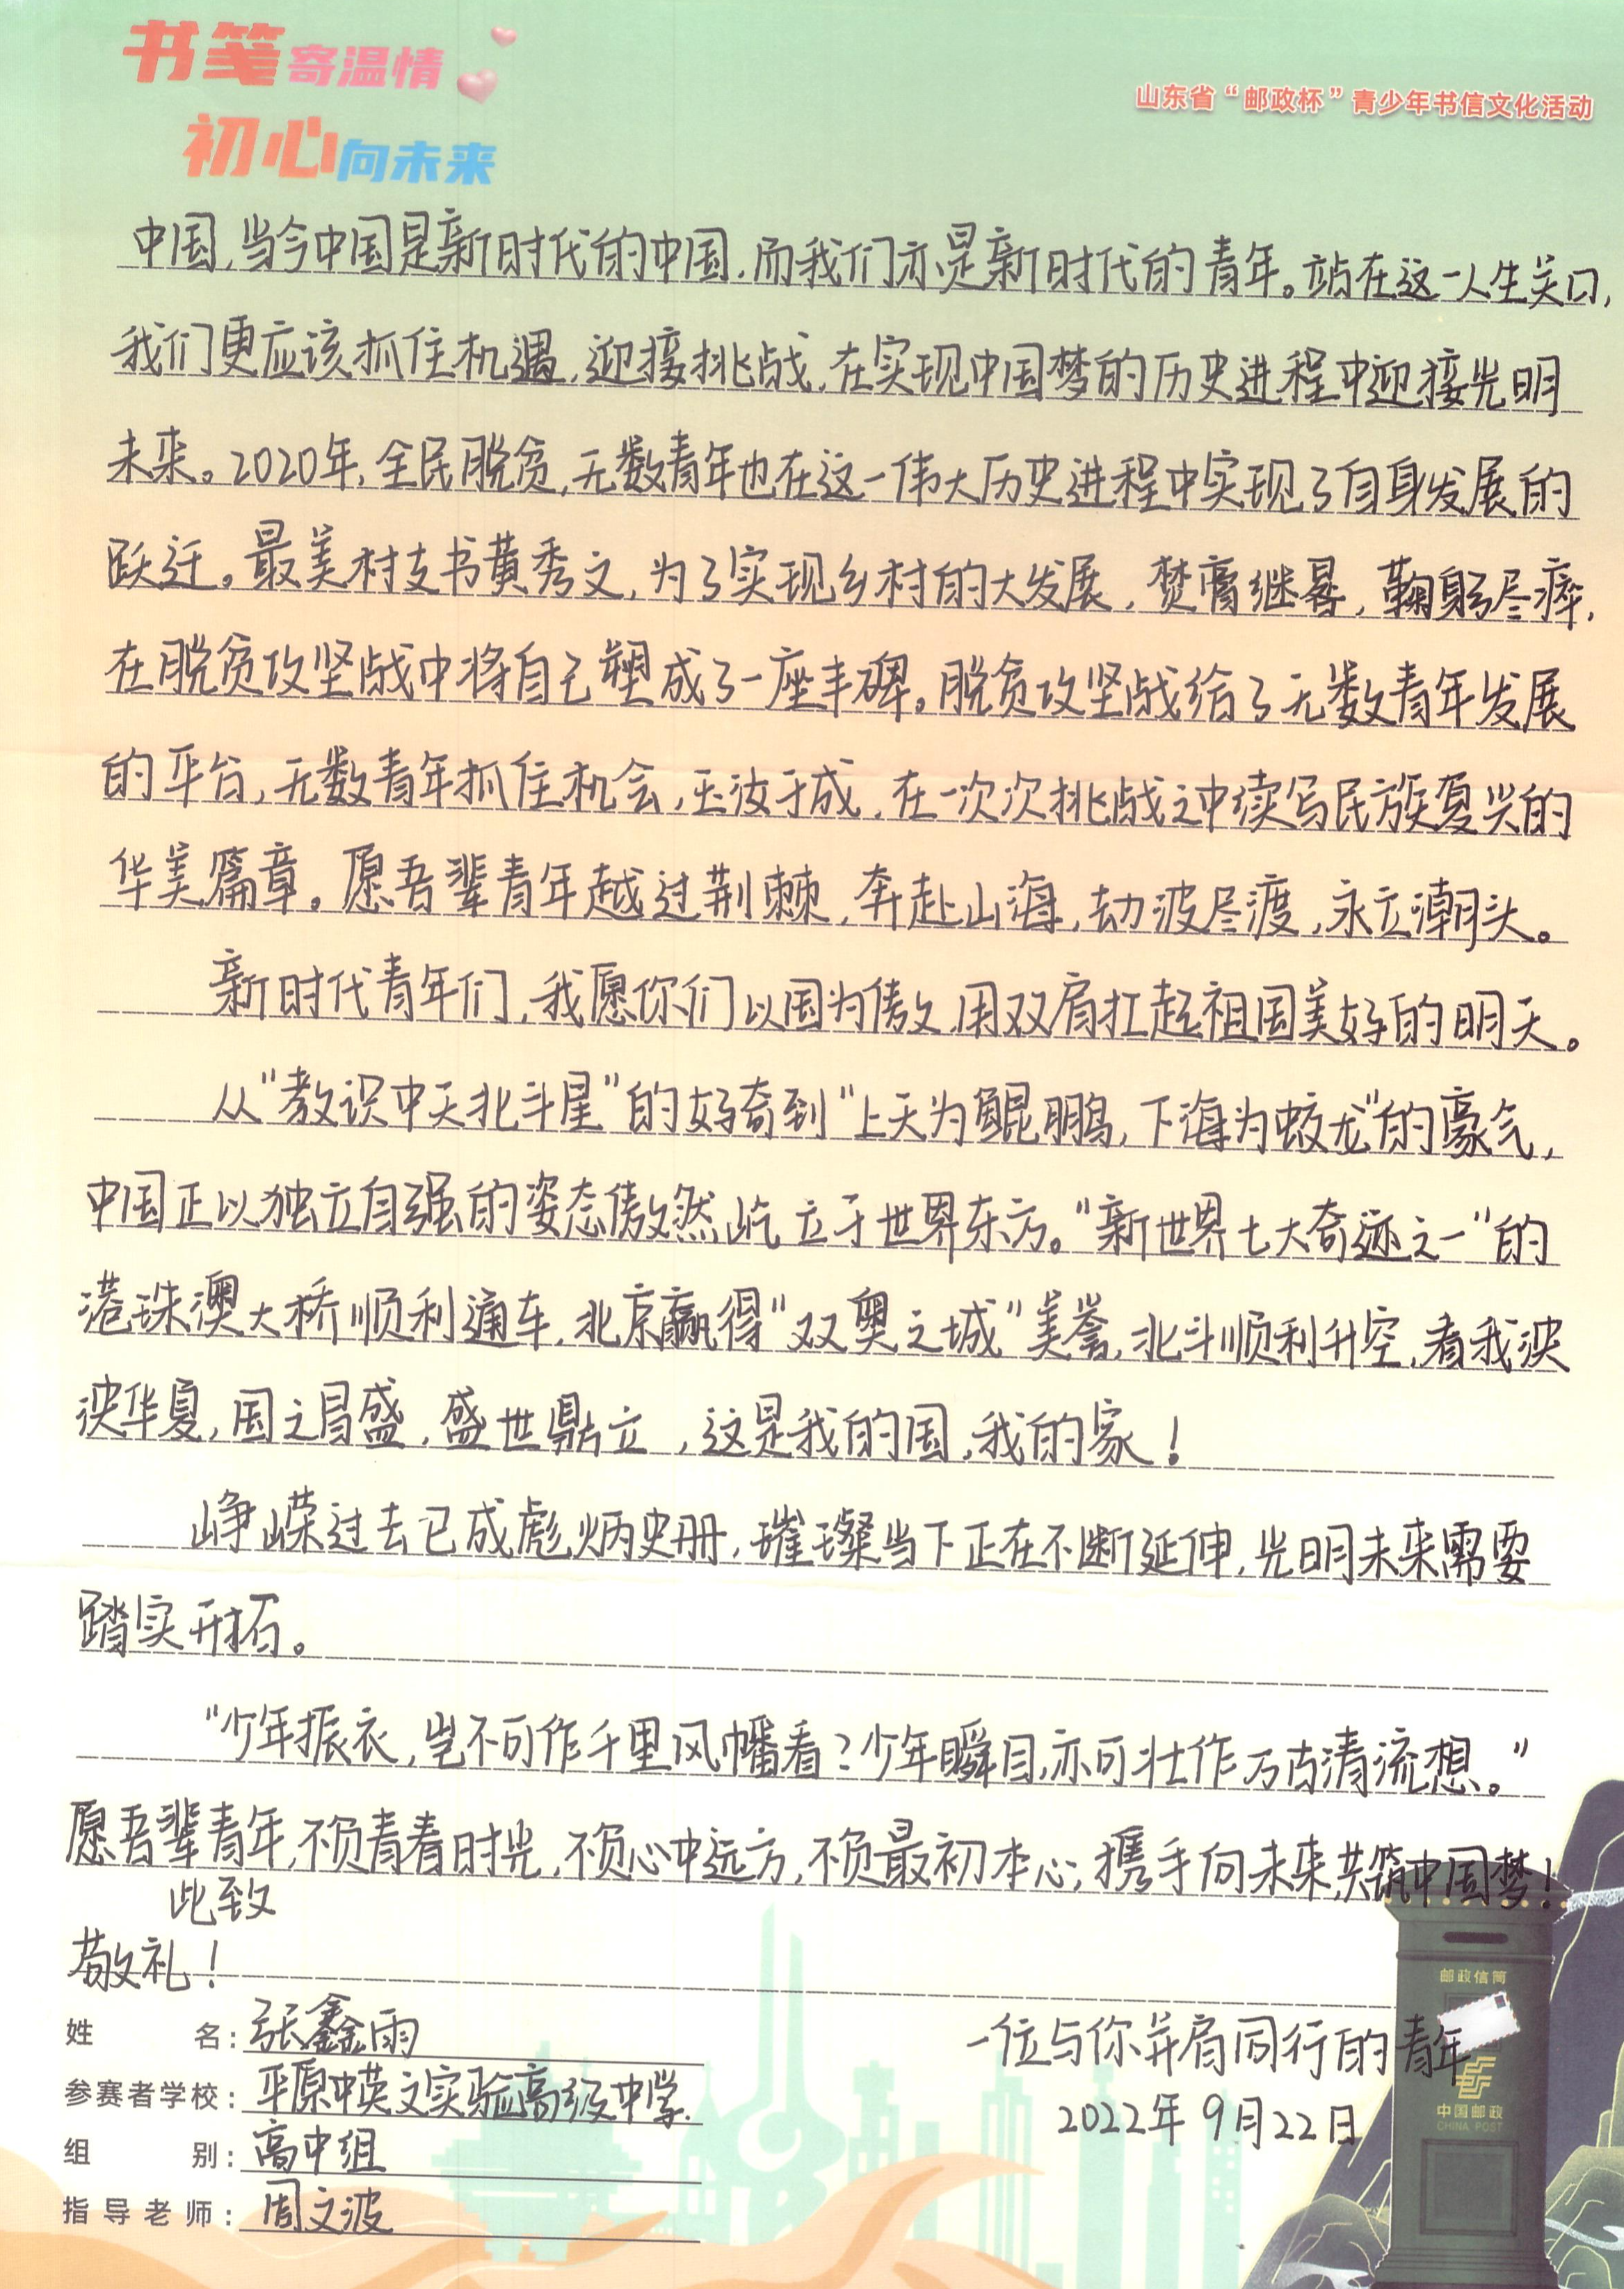 书笔寄温情
初心向未来
山东省“邮政杯”青少年书信文化活动
中国,当今中国是新时代的中国,而我们亦是新时代的青年。站在这一人生关口,
我们更应该抓住机遇,迎接挑战,在实现中国梦的历史进程中迎接光明
未来。2020年,全民脱贫,无数青年也在这一伟大历史进程中实现了自身发展的
跃迁。最美村支书黄秀文,为了实现乡村的大发展,焚膏继晷,鞠躬尽瘁,
在脱贫攻坚战中将自己塑成了一座丰碑。脱贫攻坚战给了无数青年发展
的平台,无数青年抓住机会,玉汝于成,在一次次挑战之中续写民族复兴的
华美篇章。愿吾辈青年越过荆棘,奔赴山海,劫波尽渡,永立潮头。
新时代青年们,我愿你们以国为傲,用双肩扛起祖国美好的明天。
从“教识中天北斗星”的好奇到“上天为鲲鹏,下海为蛟龙”的豪气,
中国正以独立自强的姿态傲然屹立于世界东方。“新世界七大奇迹之一”的
港珠澳大桥顺利通车,北京赢得“双奥之城”美誉,北斗顺利升空,看我泱
泱华夏,国之昌盛,盛世鼎立,这是我的国,我的家!
峥嵘过去已成彪炳史册,璀璨当下正在不断延伸,光明未来需要
踏实开拓。
“少年振衣,岂不可作千里风幡看?少年瞬目,亦可壮作万古清流想。”
愿吾辈青年,不负青春时光,不负心中远方,不负最初本心;携手向未来,共筑中国梦!
此致
敬礼!
姓名:张鑫雨
参赛者学校:平原中英文实验高级中学.
组别:高中组
指导老师:周文波
一位与你并肩同行的青年
2022年9月22日
邮政信筒
中国邮政
CHINA POST